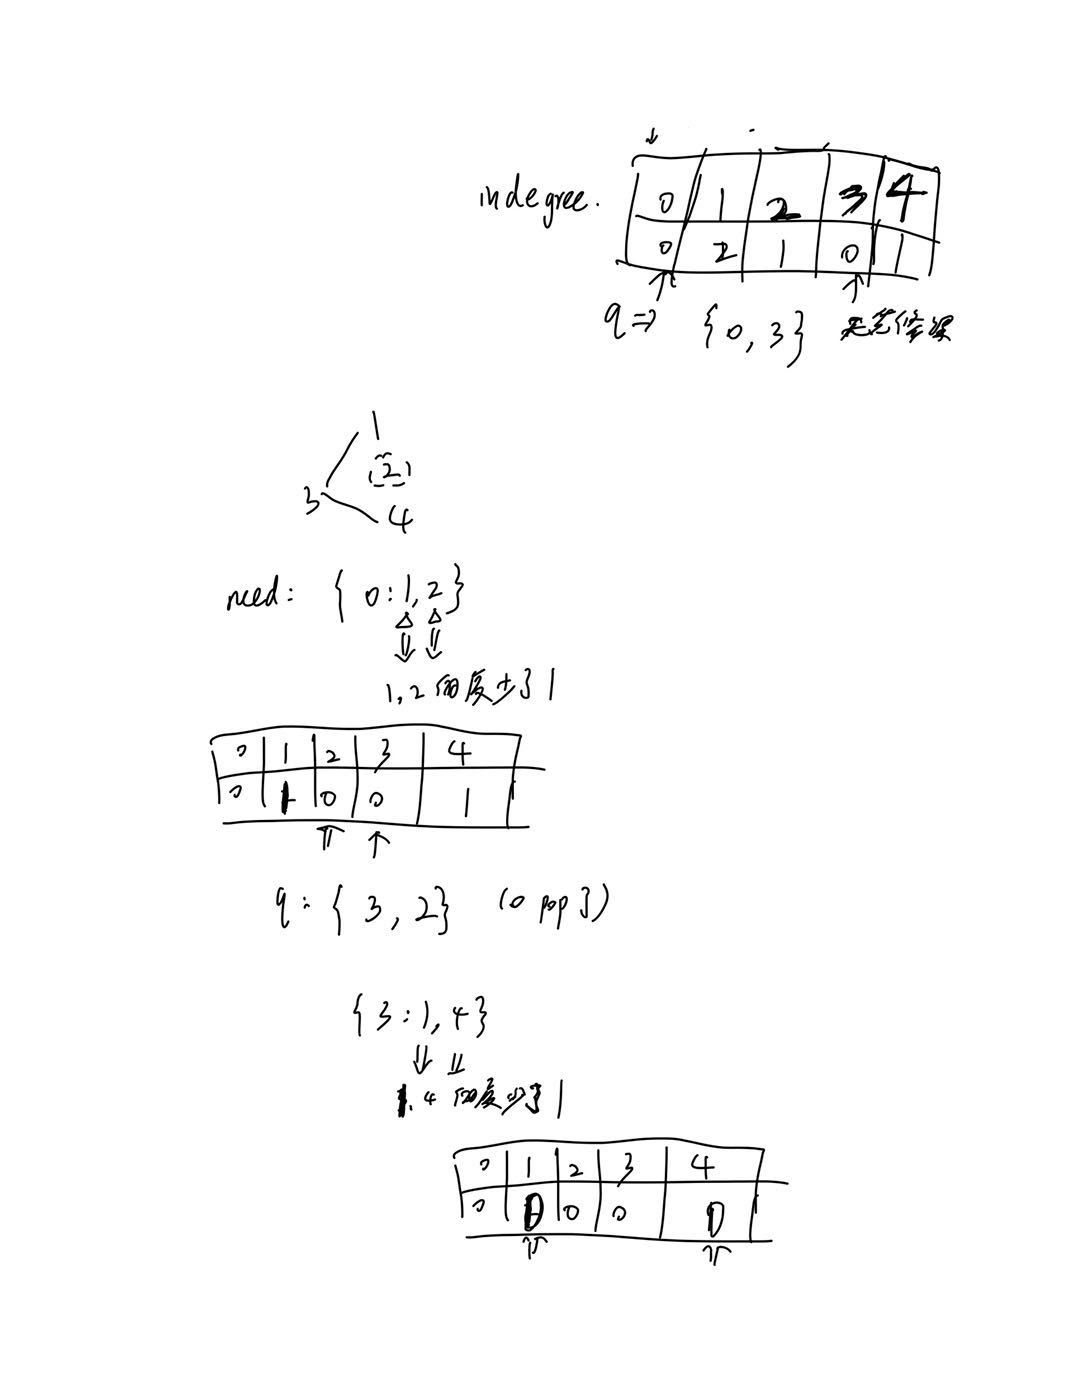 indegree.
0 1 2 3 4
0 2 1 0 1
q => {0, 3} 无先修课
1
(2)
3
4
need: { 0:1, 2 }
1, 2 的度少了1
0 1 2 3 4
0 1 0 0 1
q: { 3, 2} (0 pop了)
{3:1, 4}
1, 4 的度少了1
0 1 2 3 4
0 0 0 0 0